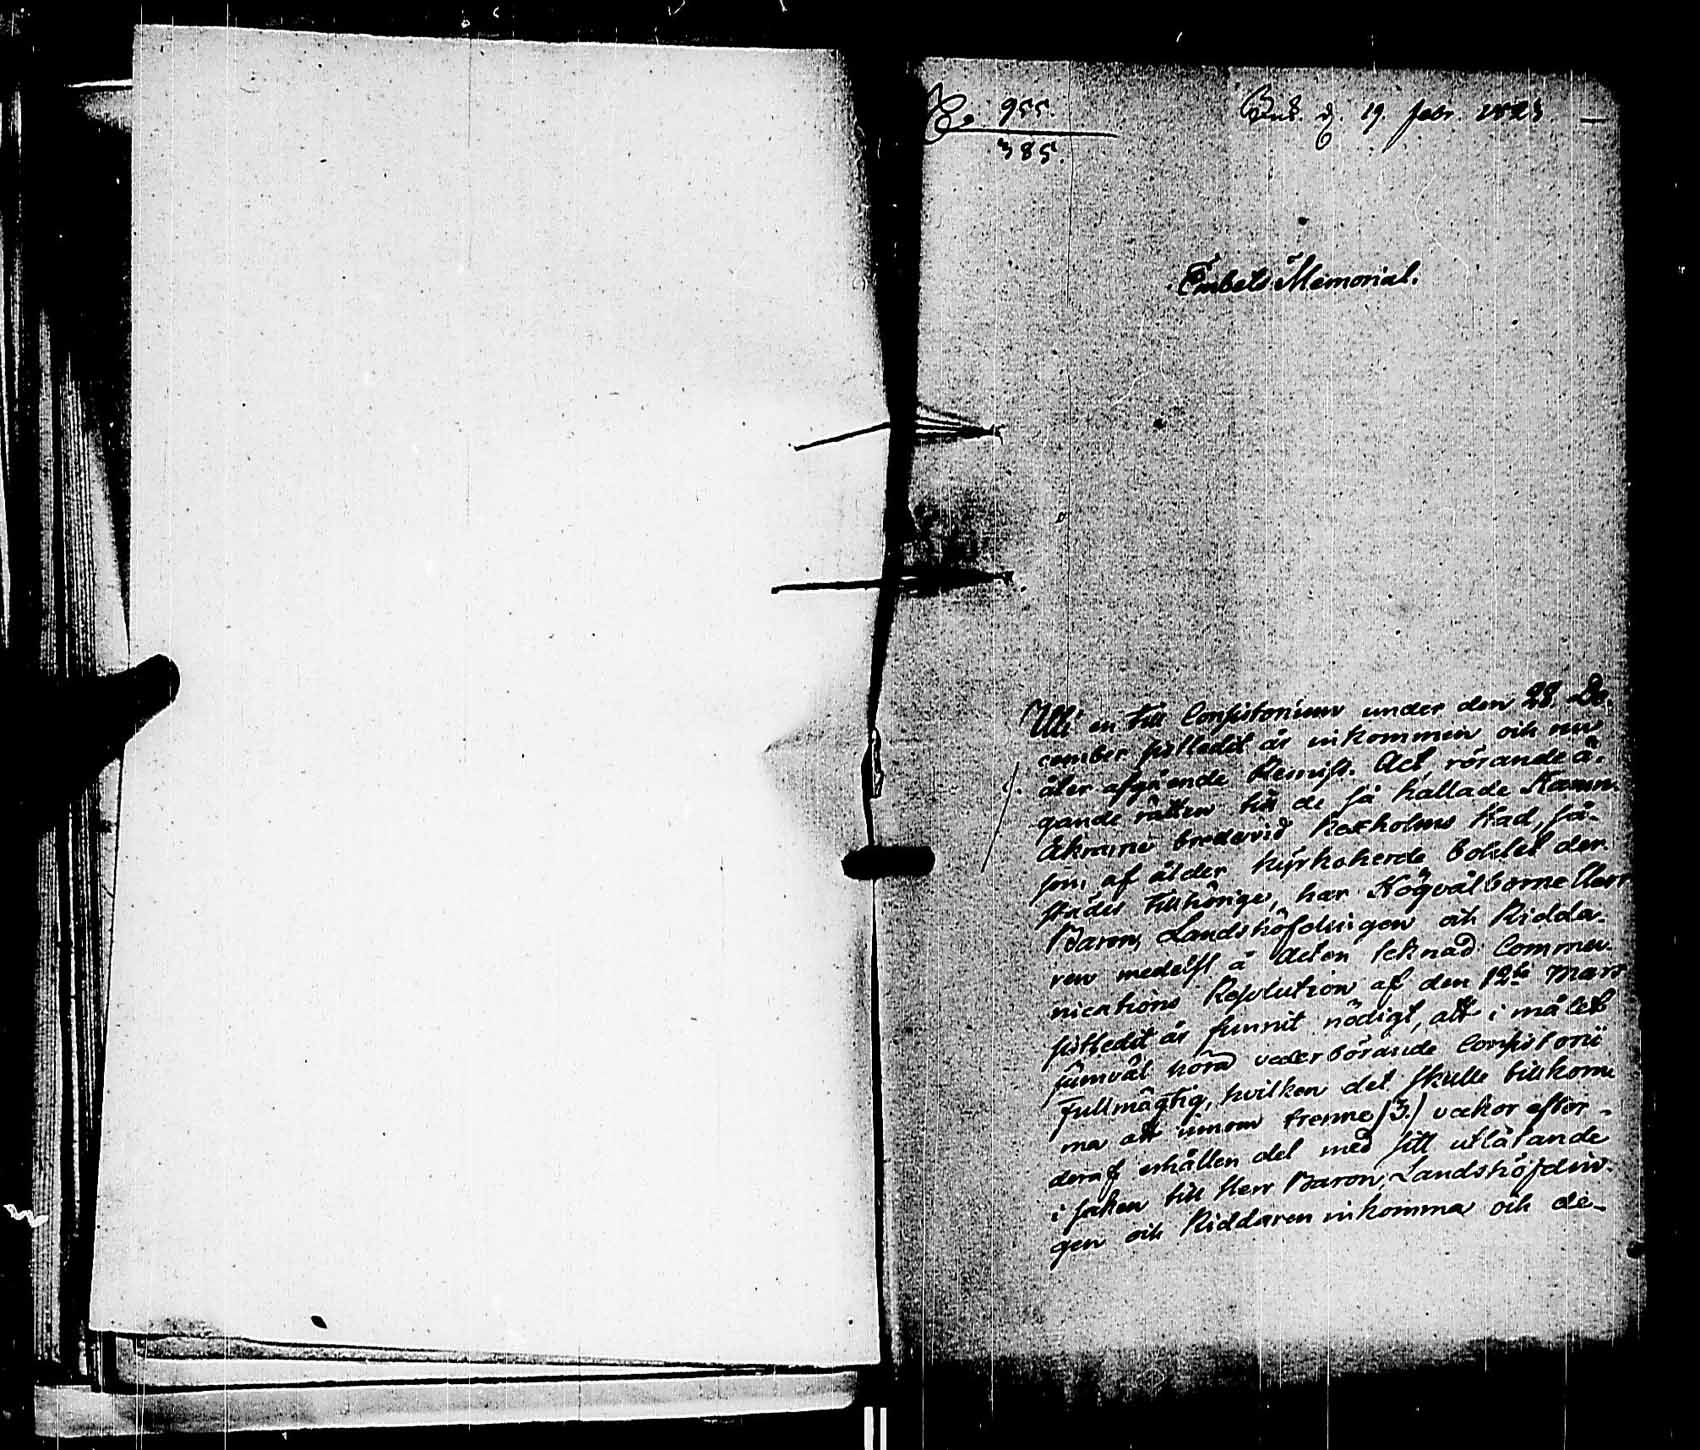 955.
385.
d. 19. Febr. 1823
Embets Memorial.
Uti en till Consistorium under den 28 De-
cember sistledit år inkommen och nu
åter afgående Remiss. Act rörande ä-
gande rätten till de så kallade Kamm
Åkrarne bredevid Kexholms Stad, så-
som af ålder Kyrkoherde Bohlet der
städes tillhörige, har Högvälborne Herr
Baron, Landshöfdingen och Ridda-
ren medelst å Acten tecknad Commu-
nications Resolution af den 12te Mars
sistledit år funnit nödigt, att i målet
jemväl höra vederbörande Consistorii
Fullmägtig, hvilken det skulle tillkom
ma att innom trenne /3./ veckor efter
deraf erhållen del med sitt utlåtande
i saken till Herr Baron, Landshöfdin-
gen och Riddaren inkomma och de-